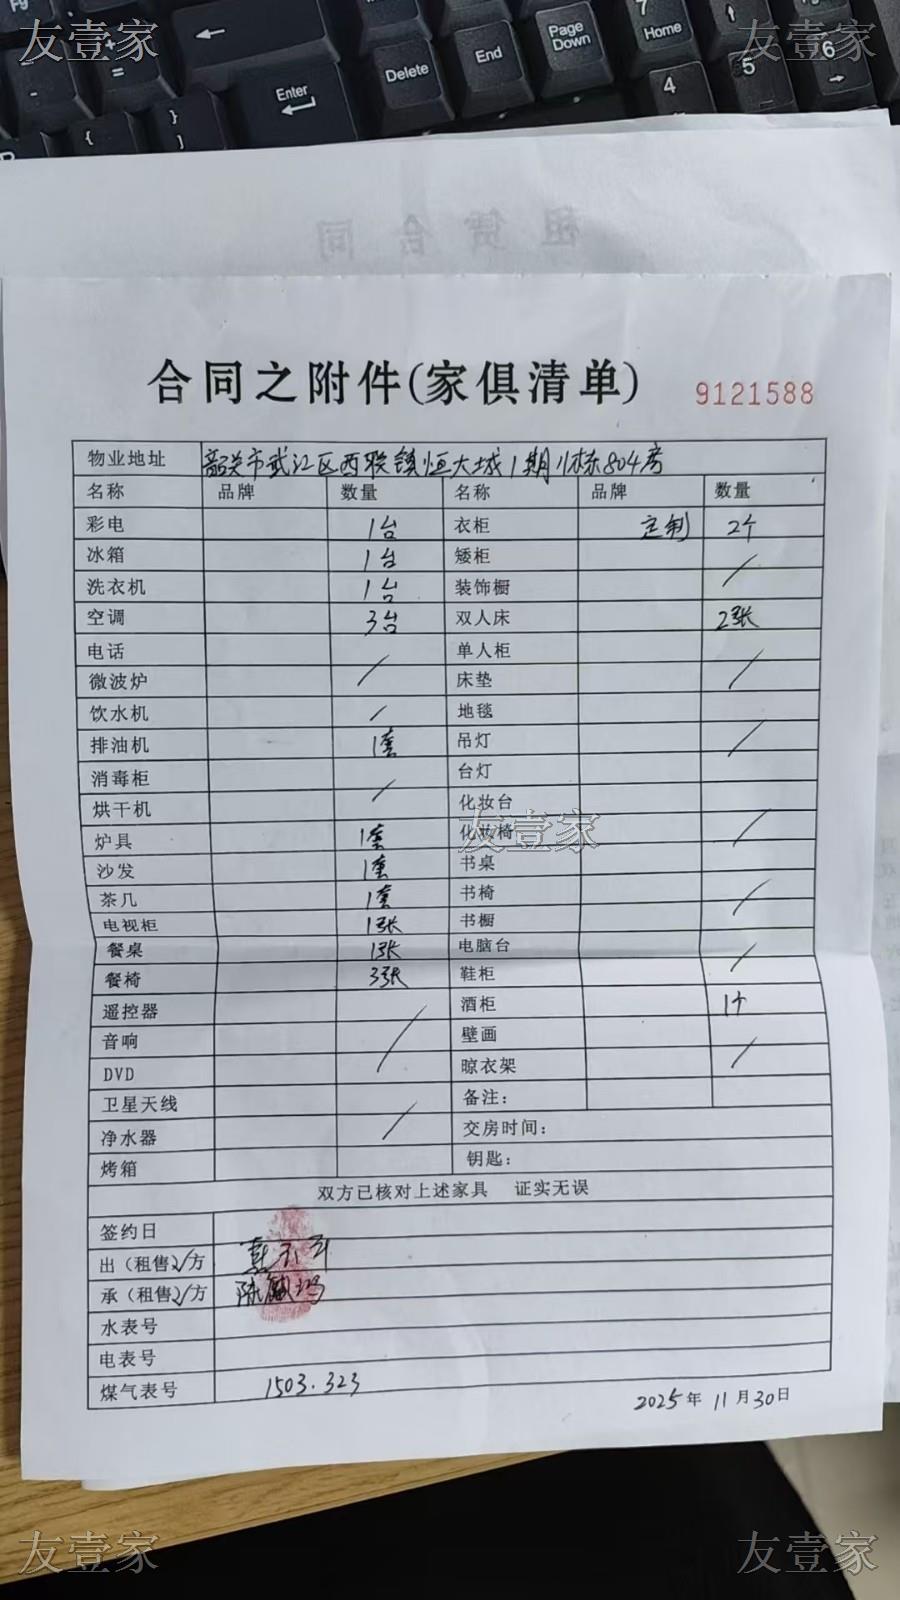 友壹家 友壹家
Delete End Page Down 7 Home
Enter 4 5 6
租赁合同
合同之附件(家俱清单) 9121588
物业地址 韶关市武江区西联镇恒大城1期11栋804房
名称 品牌 数量 名称 品牌 数量
彩电 1台 衣柜 定制 2个
冰箱 1台 矮柜
洗衣机 1台 装饰橱 /
空调 3台 双人床 2张
电话 单人柜
微波炉 / 床垫 /
饮水机 / 地毯
排油机 1套 吊灯 /
消毒柜 台灯
烘干机 / 化妆台
炉具 1套 化妆椅 /
友壹家
沙发 1套 书桌
茶几 1套 书椅 /
电视柜 1张 书橱
餐桌 1张 电脑台
餐椅 3张 鞋柜 /
遥控器 酒柜 1个
音响 / 壁画
DVD 晾衣架 /
卫星天线 备注：
净水器 / 交房时间：
烤箱 钥匙：
双方已核对上述家具 证实无误
签约日
出（租售）√方
承（租售）√方 陈
水表号
电表号
煤气表号 1503.323
2025年11月30日
友壹家 友壹家